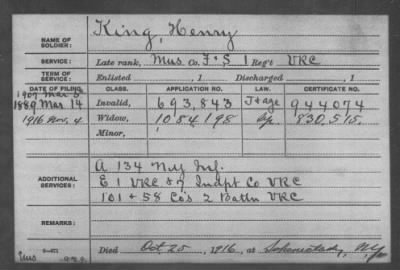 NAME OF SOLDIER: King, Henry
SERVICE: Late rank, Mus. Co. F & S 1 Reg't VRC
TERM OF SERVICE: Enlisted , 1 Discharged , 1
DATE OF FILING. CLASS. APPLICATION NO. LAW. CERTIFICATE NO.
1907 Mar
1889 Mar 14 Invalid, 693,843 944074
1916 Nov. 4 Widow, 1054198 830,515
Minor,
ADDITIONAL SERVICES: A 134 N.Y. Inf.
E 1 VRC & 7 Indpt Co VRC
101 & 58 Co's 2 Battn VRC
REMARKS:
Died Oct 25, 1916, at Schenectady, N.Y.